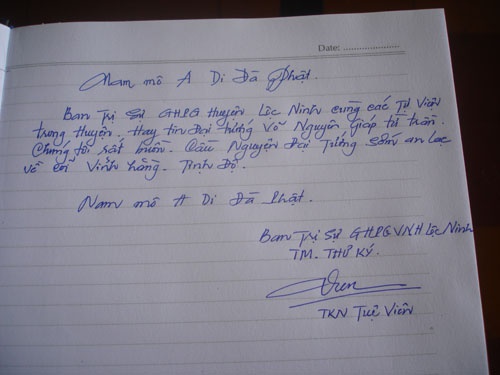 Date: ....................
Nam mô A Di Đà Phật.
Ban Trị Sự GHPG Huyện Lộc Ninh cùng các Tự Viện
trong huyện. Hay tin Đại tướng Võ Nguyên Giáp từ trần.
Chúng tôi rất buồn. Cầu Nguyện Đại Tướng sớm an lạc
về cõi Vĩnh hằng. Tịnh Độ.
Nam mô A Di Đà Phật.
Ban Trị Sự GHPGVNH Lộc Ninh
TM. THƯ KÝ.
TKN Tuệ Viên